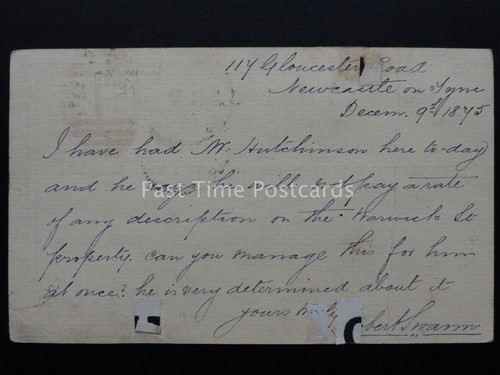 117 Gloucester Road
Newcastle on Tyne
Decem. 9th 1875
I have had Mr Hutchinson here to-day
and he says he will not pay a rate
Past Time Postcards
of any description on the Warwick St
property. can you manage this for him
at once? he is very determined about it
yours truly
obert Swann